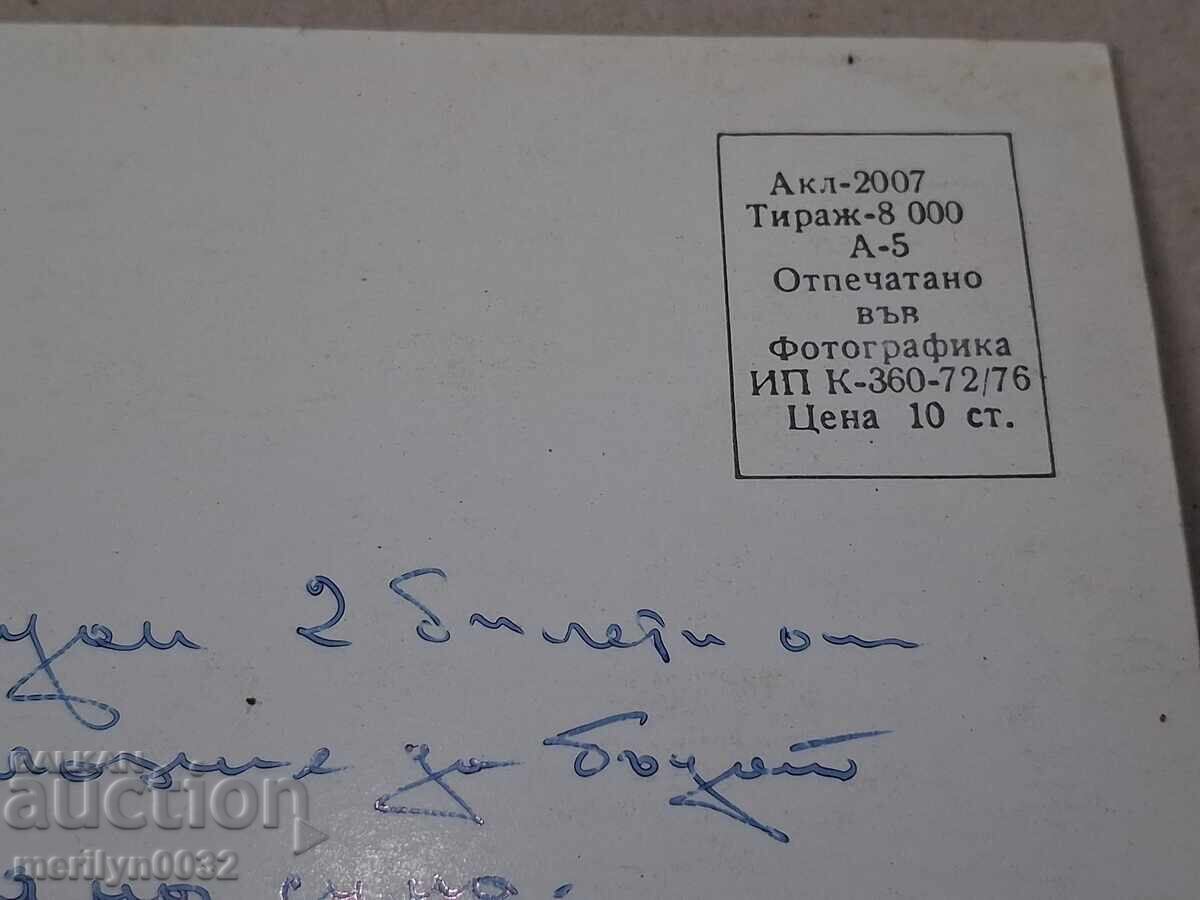 Акл-2007
Тираж-8 000
А-5
Отпечатано
във
Фотографика
ИП К-360-72/76
Цена 10 ст.
2 билети от
да бъдат
BALKAN
auction
merilyn0032